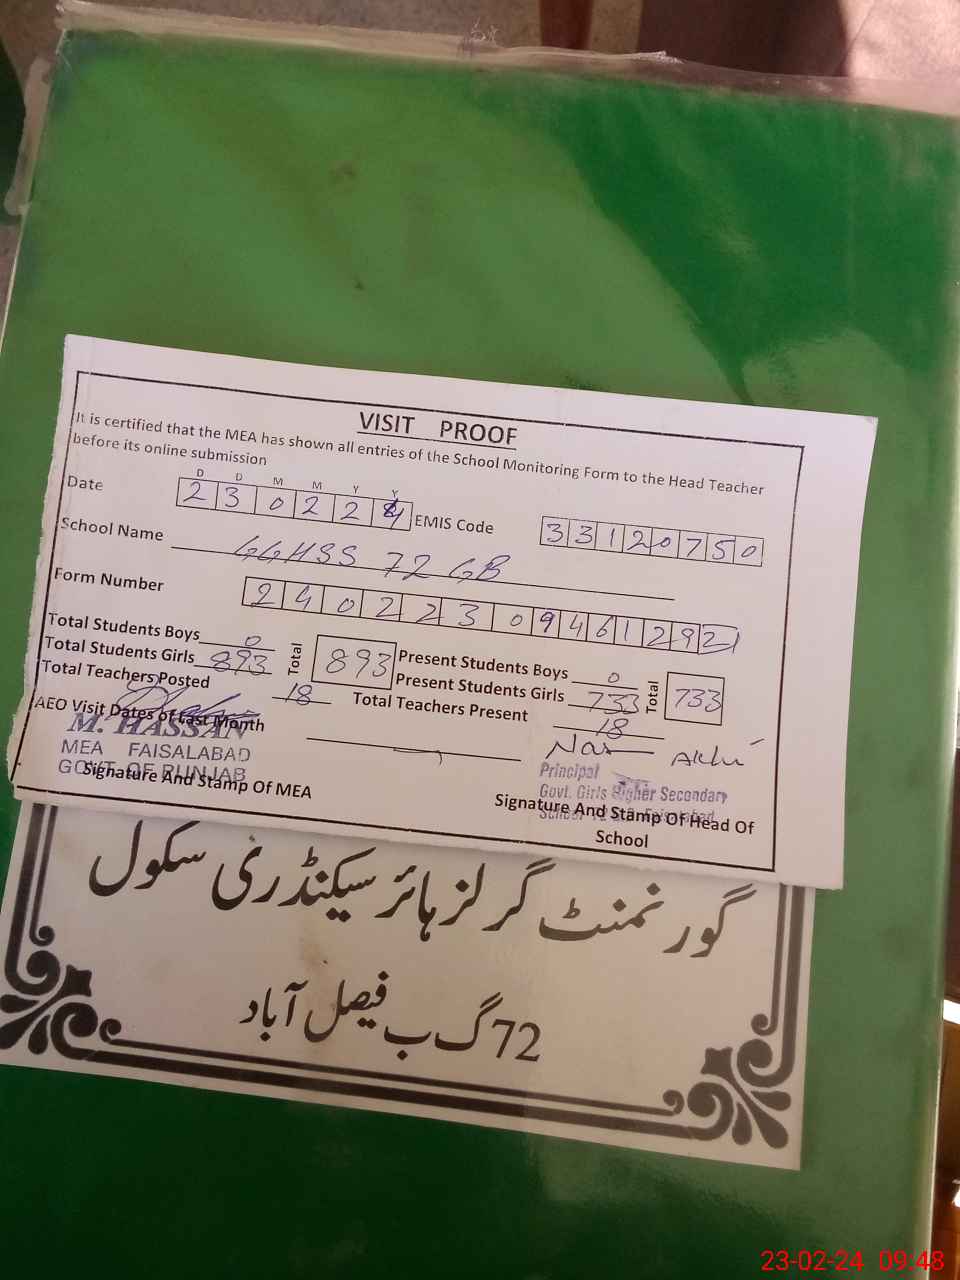 VISIT PROOF
It is certified that the MEA has shown all entries of the School Monitoring Form to the Head Teacher
before its online submission
D D M M Y Y
Date 2 3 0 2 2 4 EMIS Code 3 3 1 2 0 7 5 0
School Name GGHSS 72 GB
Form Number 2 4 0 2 2 3 0 9 4 6 1 2 9 2
Total Students Boys 0 Total 893 Present Students Boys 0 Total 733
Total Students Girls 893 Present Students Girls 733
Total Teachers Posted 18 Total Teachers Present 18
AEO Visit Dates of Last Month
M. HASSAN
MEA FAISALABAD
GOVT OF PUNJAB
Signature And Stamp Of MEA
Principal
Govt. Girls Higher Secondary
School 72 G.B. Faisalabad
Signature And Stamp Of Head Of
School
گورنمنٹ گرلز ہائر سیکنڈری سکول
72 گ ب فیصل آباد
23-02-24 09:48